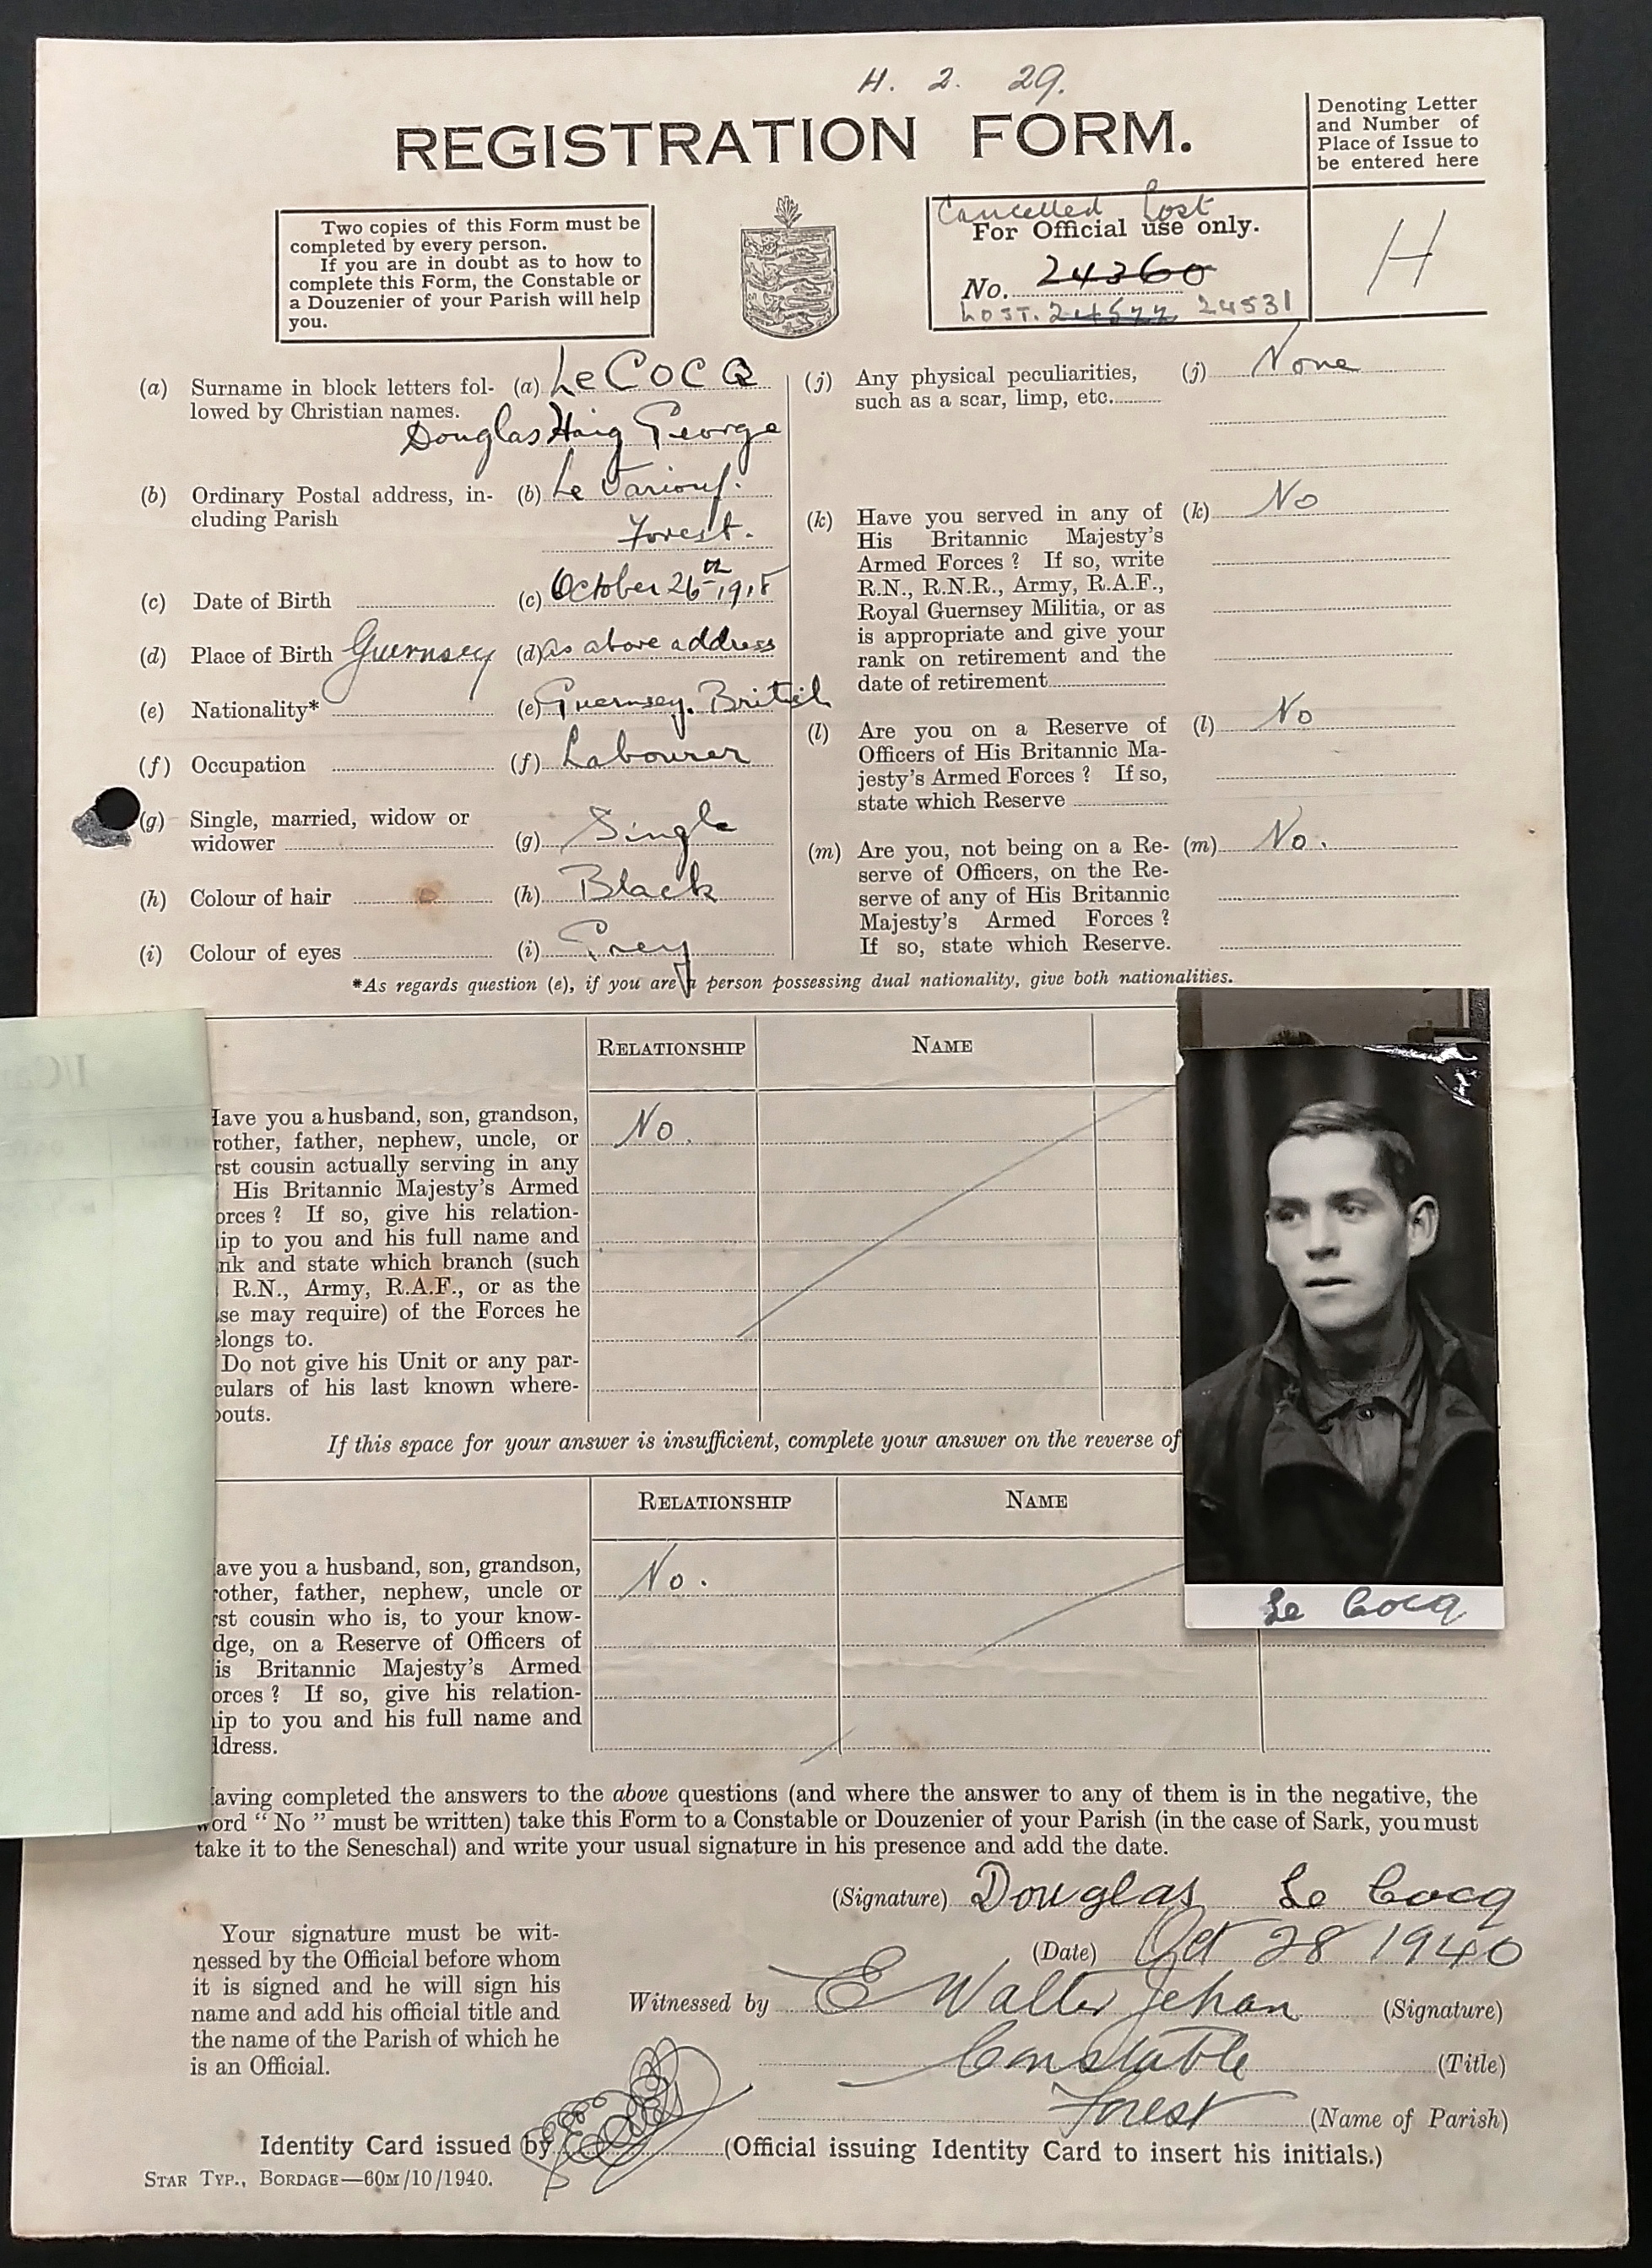 H. 2. 29.
REGISTRATION FORM.
Denoting Letter
and Number of
Place of Issue to
be entered here
H
Two copies of this Form must be
completed by every person.
If you are in doubt as to how to
complete this Form, the Constable or
a Douzenier of your Parish will help
you.
Cancelled Lost
For Official use only.
No. 24360
LOST. 24522 24531
(a) Surname in block letters fol- (a) Le COCQ
lowed by Christian names.
Douglas Haig George
(b) Ordinary Postal address, in- (b) Le Variouf.
cluding Parish
Forest.
(c) Date of Birth (c) October 26th 1918
(d) Place of Birth Guernsey (d) as above address
(e) Nationality* (e) Guernsey. British
(f) Occupation (f) Labourer
(g) Single, married, widow or
widower (g) Single
(h) Colour of hair (h) Black
(i) Colour of eyes (i) Grey
(j) Any physical peculiarities, (j) None
such as a scar, limp, etc.
(k) Have you served in any of (k) No
His Britannic Majesty's
Armed Forces ? If so, write
R.N., R.N.R., Army, R.A.F.,
Royal Guernsey Militia, or as
is appropriate and give your
rank on retirement and the
date of retirement
(l) Are you on a Reserve of (l) No
Officers of His Britannic Ma-
jesty's Armed Forces ? If so,
state which Reserve
(m) Are you, not being on a Re- (m) No.
serve of Officers, on the Re-
serve of any of His Britannic
Majesty's Armed Forces ?
If so, state which Reserve.
*As regards question (e), if you are a person possessing dual nationality, give both nationalities.
RELATIONSHIP NAME
ave you a husband, son, grandson, No.
rother, father, nephew, uncle, or
rst cousin actually serving in any
His Britannic Majesty's Armed
orces ? If so, give his relation-
ip to you and his full name and
nk and state which branch (such
R.N., Army, R.A.F., or as the
se may require) of the Forces he
longs to.
Do not give his Unit or any par-
culars of his last known where-
outs.
If this space for your answer is insufficient, complete your answer on the reverse of
RELATIONSHIP NAME
ave you a husband, son, grandson, No.
other, father, nephew, uncle or
rst cousin who is, to your know-
dge, on a Reserve of Officers of
is Britannic Majesty's Armed
orces ? If so, give his relation-
ip to you and his full name and
ddress.
Le Cocq
aving completed the answers to the above questions (and where the answer to any of them is in the negative, the
word " No " must be written) take this Form to a Constable or Douzenier of your Parish (in the case of Sark, you must
take it to the Seneschal) and write your usual signature in his presence and add the date.
(Signature) Douglas Le Cocq
(Date) Oct 28 1940
Your signature must be wit-
nessed by the Official before whom
it is signed and he will sign his
name and add his official title and
the name of the Parish of which he
is an Official.
Witnessed by E Walter Jehan (Signature)
Constable (Title)
Forest (Name of Parish)
Identity Card issued by (Official issuing Identity Card to insert his initials.)
STAR TYP., BORDAGE—60M/10/1940.